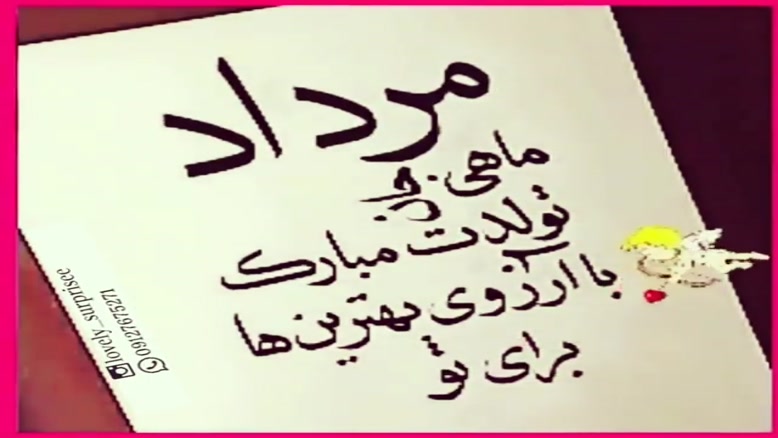 مرداد
ماهی جان
تولدت مبارک
با آرزوی بهترین ها
برای تو
@lovely_surprisee
09127675271